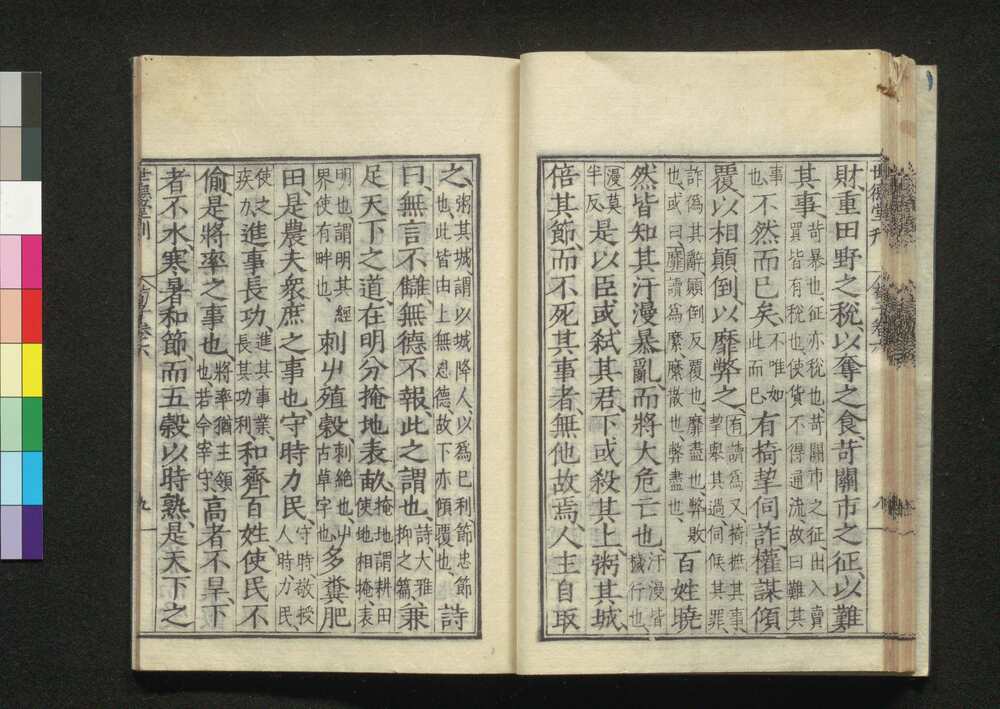 世德堂刊 荀子卷六 八
財、重田野之稅、以奪之食、苛關市之征、以難
其事、苛暴也、征亦稅也、苛關市之征、出入賣買皆有稅也、使貨不得通流、故曰難其
事也 不然而已矣、不唯如此而已 有掎挈伺詐、權謀傾
覆以相顛倒、以靡弊之、有讀爲又、掎摭其事、挈擧其過、伺候其罪、
詐僞其辭、顛倒反覆也、靡盡也、弊敗也、或曰、靡讀爲糜、糜散也、弊盡也、 百姓曉
然皆知其汙漫暴亂、而將大危亡也、汙漫皆穢行也、
漫莫半反 是以臣或弑其君、下或殺其上、粥其城、
倍其節、而不死其事者、無他故焉、人主自取
之、粥其城、謂以城降人、以爲已利、節忠節也、此皆由上無恩德、故下亦傾覆也、 詩
曰、無言不讎、無德不報、此之謂也、詩大雅抑之篇 兼
足天下之道、在明分、掩地表畝、掩地謂耕田使地相掩、表
明也、謂明其經界使有畔也、 刺屮殖穀、刺絶也、屮古草字也 多糞肥
田、是農夫衆庶之事也、守時力民、守時敬授人時、力民
使之疾力、 進事長功、進其事業、長其功利、 和齊百姓、使民不
偷、是將率之事也、將率猶主領也、若今宰守、 高者不旱、下
者不水、寒暑和節、而五穀以時熟、是天下之
世德堂刊 荀子卷六 九